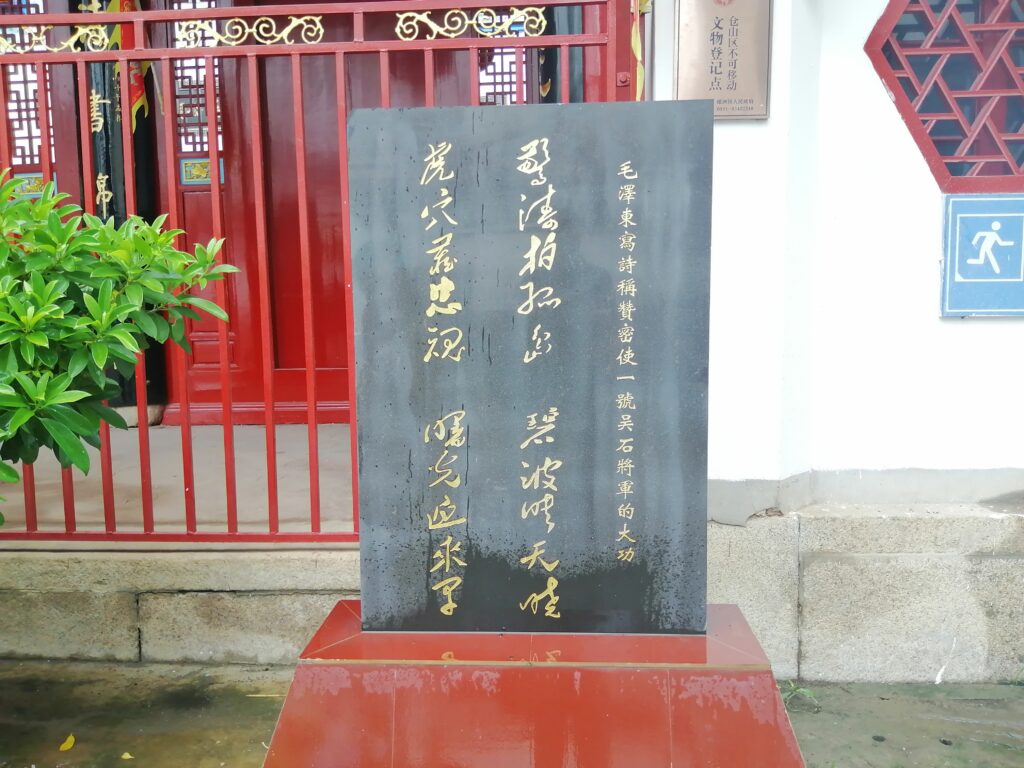 仓山区不可移动
文物登记点
毛澤東寫詩稱贊密使一號吴石將軍的大功
驚濤拍孤島 碧波映天曉
虎穴藏忠魂 曙光迎來早
書帛